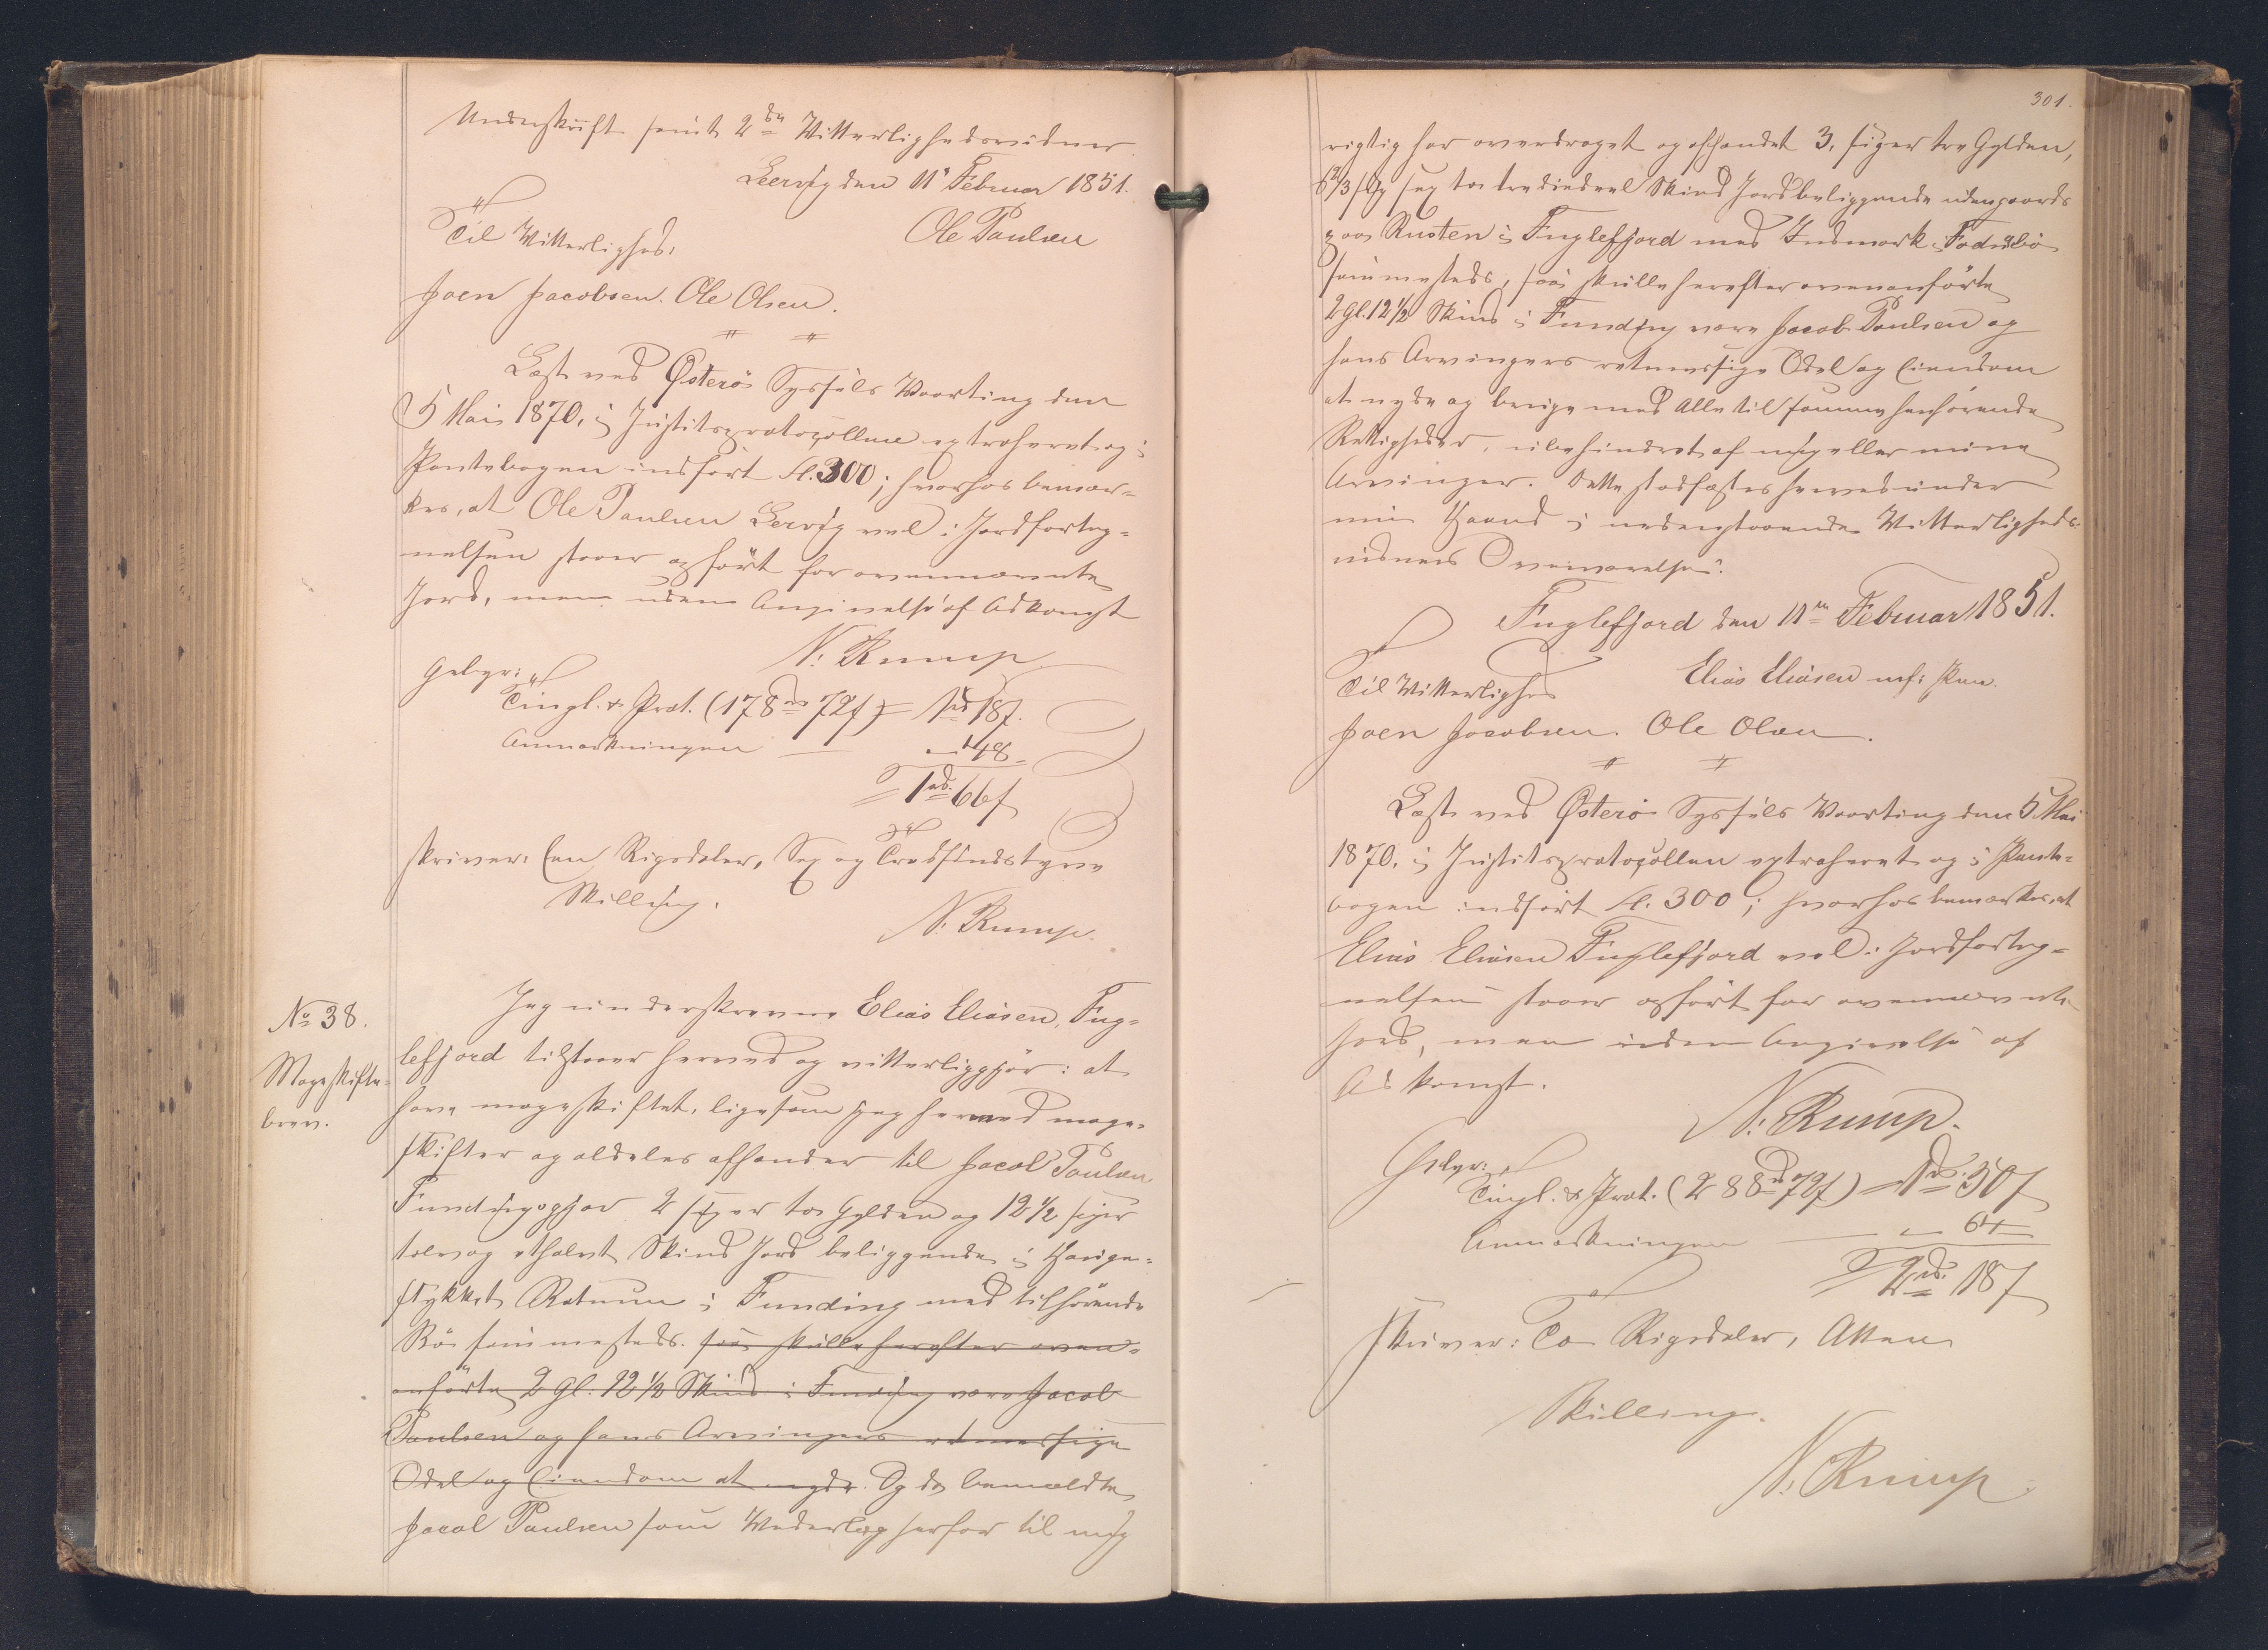 Underskrift samt 2de Vitterlighedsvidner
Leervig den 11' Februar 1851.
Ole Paulsen
Til Vitterlighed:
Joen Jacobsen. Ole Olsen.
Læst ved Østerø Syssels Vaarting den
5 Mai 1870, i Justitsprotocollen extraheret og i
Pantebogen indført fl. 300; hvorhos bemær-
kes, at Ole Paulsen Lervig vel i Jordforteg-
nelsen staaer opført for ovennævnte
Jord, men uden Angivelse af Adkomst
N. Rump
Gebyr:
Tingl. & Prot. (178rd 72ſ) = 1rd 18ſ.
Anmærkningen — " 48 -
1rd. 66ſ
skriver: Een Rigsdaler, Sex og Tredsindstyve
Skilling.
N. Rump.
No 38.
Mageskifte-
brev.
Jeg underskrevne Elias Eliasen, Fug-
lefjord tilstaaer herved og vitterliggjør: at
have mageskiftet, ligesom jeg herved mage-
skifter og aldeles afhænder til Jacob Paulsen
Fundingsgjov 2 siger to Gylden og 12½ siger
tolv og et halvt Skind Jord beliggende i Hauge-
stykket Ratnun i Funding med tilhørende
Bø sammesteds. saa skulle herefter oven-
anførte 2 Gl: 12½ Skind i Funding være Jacob
Paulsen og hans Arvingers retmæssige
Odel og Eiendom at nyde. Og da bemeldte
Jacob Paulsen som Vederlag herfor til mig
301.
rigtig har overdraget og afhændet 3, siger tre Gylden,
6 2/3 siger sex to trediedeel Skind Jord beliggende udengaards
paa Rusten i Fuglefjord med Indmark i
sammesteds, saa skulle herefter ovenanførte
2 Gl. 12½ Skind i Funding være Jacob Paulsen og
hans Arvingers retmæssige Odel og Eiendom
at nyde og bruge med Alle til samme henhørende
Rettigheder, ubehindret af mig eller mine
Arvinger. Dette stadfæstes herved under
min Haand i nedenstaaende Vitterligheds-
vidners Overværelse.
Fuglefjord den 11te Februar 1851.
Elias Eliasen m. f. Pen.
Til Vitterlighed
Joen Jacobsen. Ole Olsen.
Læst ved Østerø Syssels Vaarting den 5 Mai
1870, i Justitsprotocollen extraheret og i Pante-
bogen indført fl. 300; hvorhos bemærkes, at
Elias Eliasen Fuglefjord vel i Jordforteg-
nelsen staaer opført for ovennævnte
Jord, men uden Angivelse af
Adkomst.
N. Rump.
Gebyr:
Tingl. & Prot. (288rd 72ſ) = 1rd. 50ſ
Anmærkningen — " 64
2rd. 18ſ
skriver: To Rigsdaler, Atten
Skilling.
N. Rump.